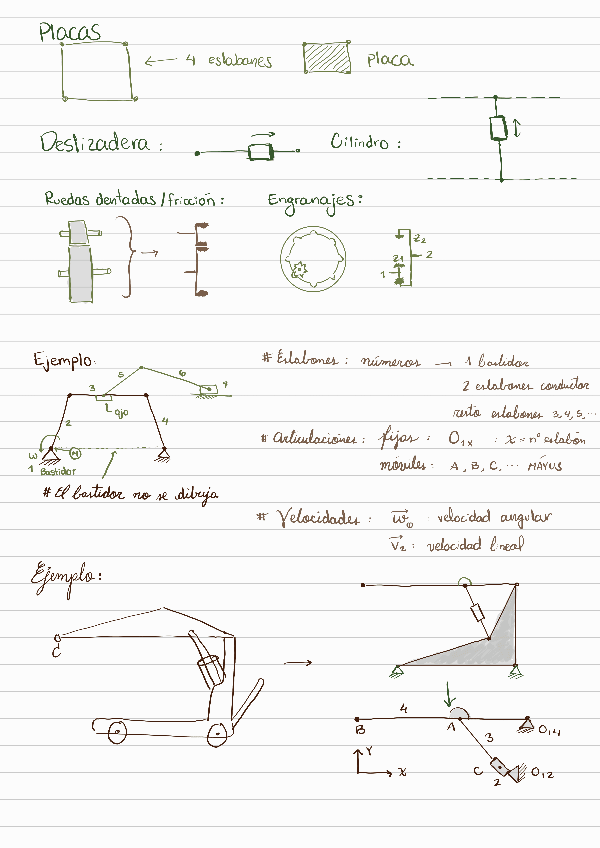 Placas
← 4 eslabones
placa
Deslizadera :
Cilindro :
Ruedas dentadas / fricción :
Engranajes :
Z2
Z1
2
1
Ejemplo:
5
6
3
7
ojo
2
4
w
M
1 Bastidor
# El bastidor no se dibuja
# Eslabones : números → 1 bastidor
2 eslabones conductor
resto eslabones 3, 4, 5, ...
# Articulaciones : fijas : O1x : x = nº eslabón
móviles : A, B, C, ... MAYUS
# Velocidades : : velocidad angular
V2 : velocidad lineal
Ejemplo:
C
4
B
A
O14
3
Y
X
C
2
O12